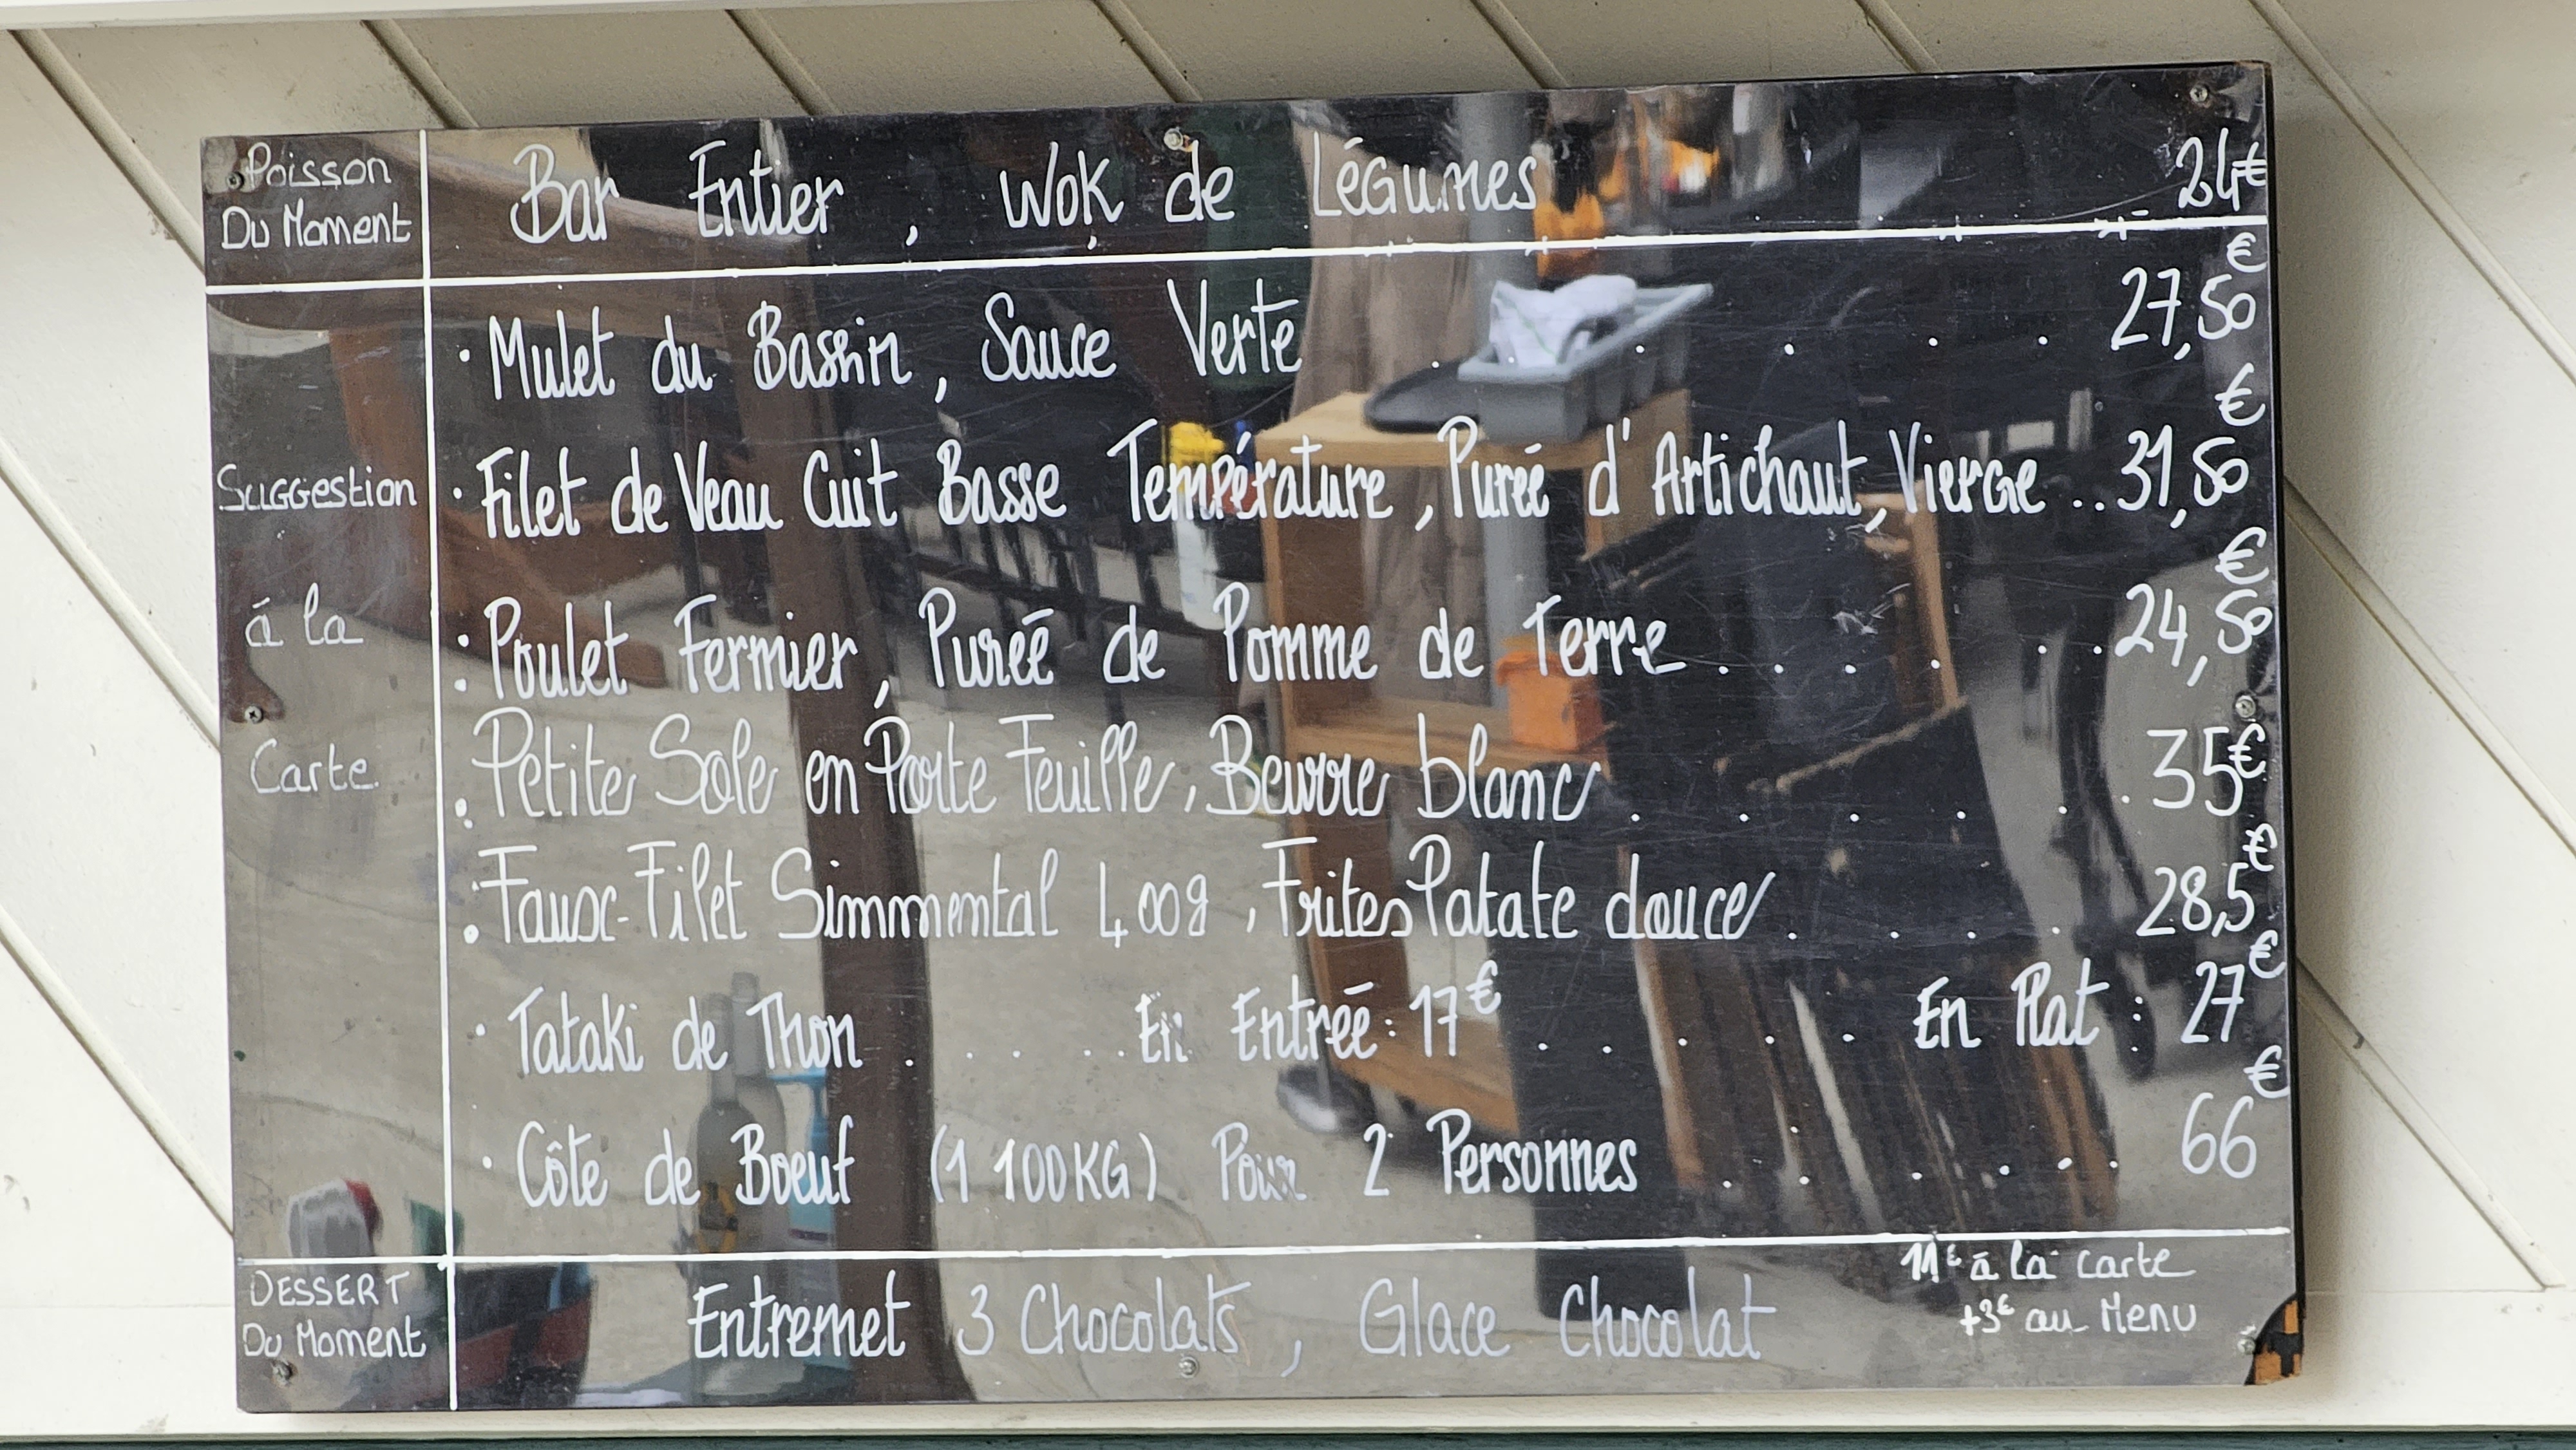 Poisson
Du Moment
Bar Entier, Wok de Légumes 24€
Suggestion
à la
Carte
· Mulet du Bassin, Sauce Verte . . . . . . 27,50€
· Filet de Veau Cuit Basse Température, Purée d'Artichaut, Vierge .. 31,50€
: Poulet Fermier, Purée de Pomme de Terre . . . . . . 24,50€
: Petite Sole en Porte Feuille, Beurre blanc . . . . . . 35€
: Faux-Filet Simmental 400g, Frites Patate douce . . . . 28,5€
· Tataki de Thon . . . . . En Entrée : 17€ . . . . . . En Plat : 27€
· Côte de Boeuf (1 100KG) Pour 2 Personnes . . . . . . 66€
DESSERT
Du Moment
Entremet 3 Chocolats, Glace Chocolat
11€ à la carte
+3€ au Menu